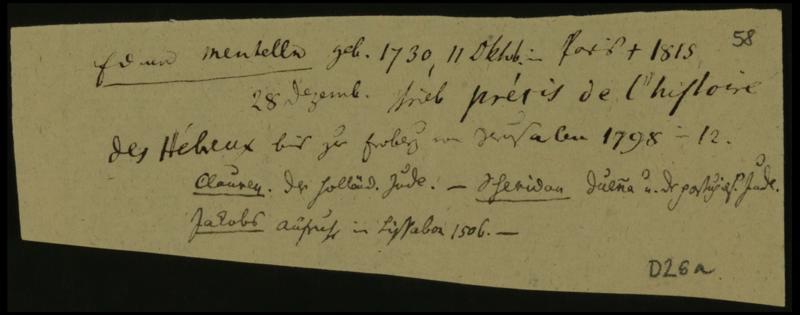 58
Edme mentelle geb. 1730, 11 Oktob. in Paris † 1815,
28 Dezemb. schrieb précis de l'histoire
des Hébreux bis zur Erober. von Jerusalem 1798 in 12.
Clauren. der holländ. Jude. — Sheridan Dueña u. der portugies. Jude.
Jakobs Aufruhr in Lissabon 1506. —
D26a